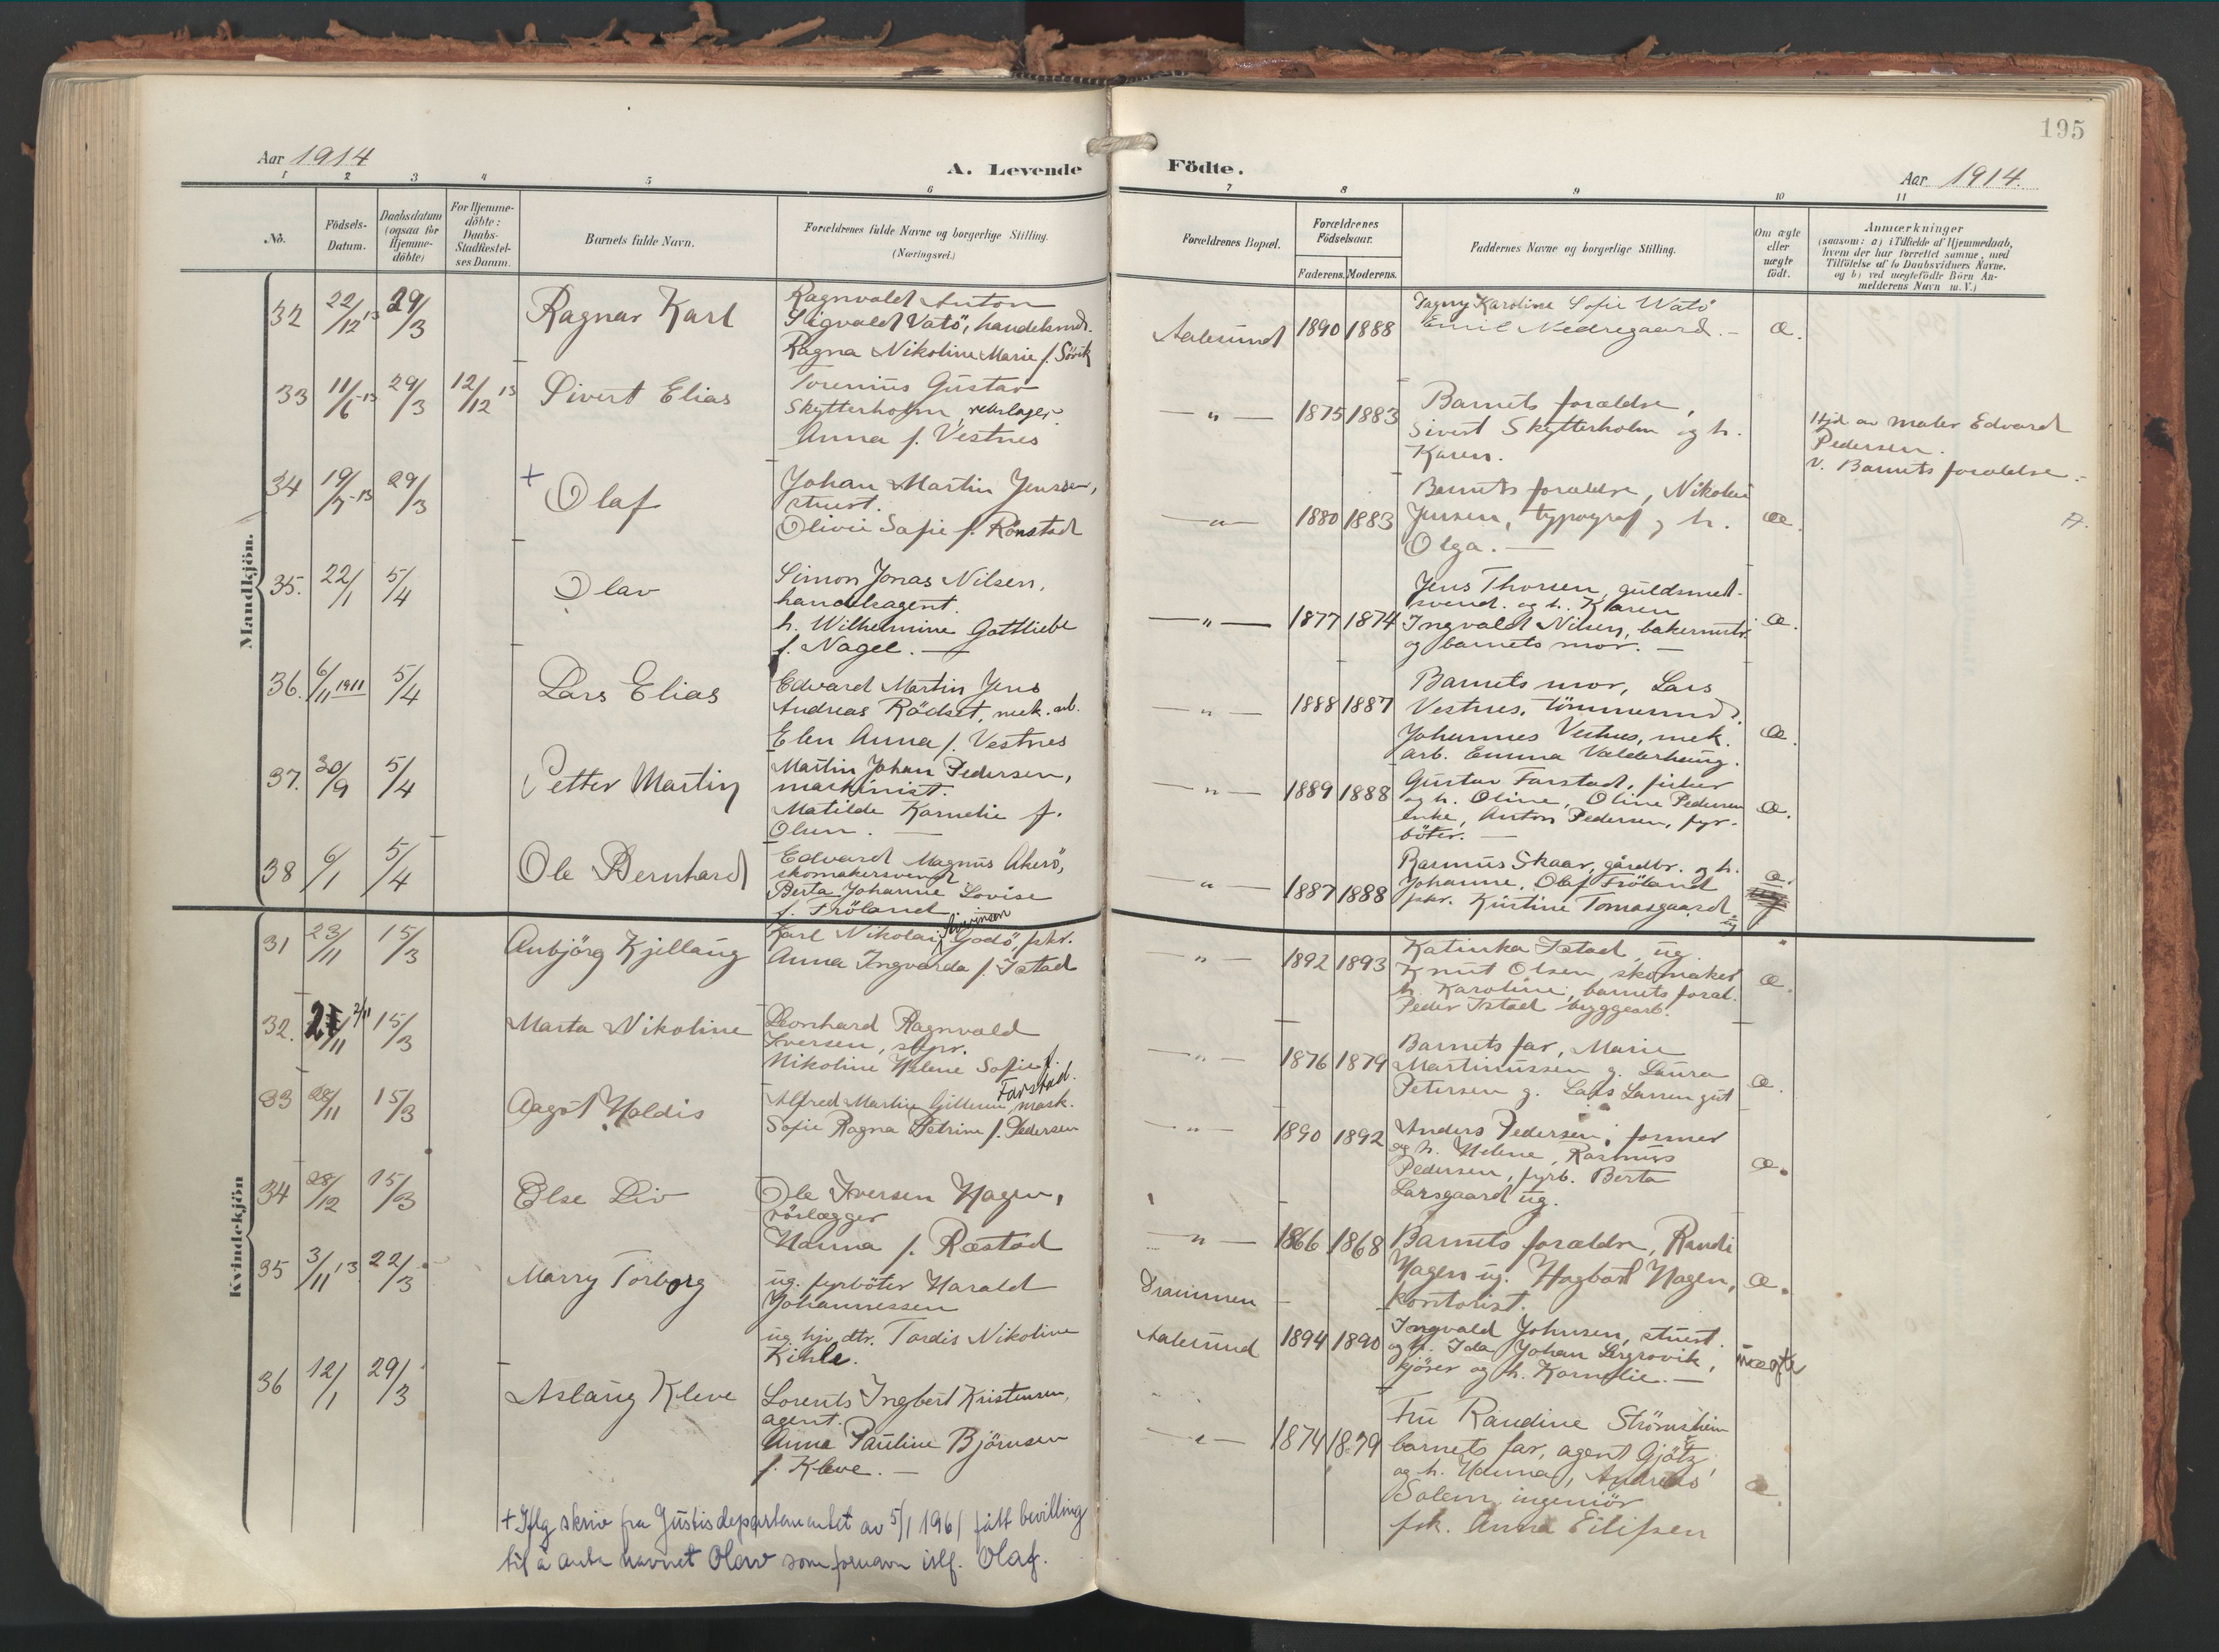 195
Aar 1914
A. Levende Födte.
Aar 1914.
1 2 3 4 5 6 7 8 9 10 11
No.
Födsels-
Datum.
Daabsdatum
(ogsaa for
Hjemme-
döbte)
For Hjemme-
döbte:
Daabs-
Stadfæstel-
ses Datum.
Barnets fulde Navn.
Forældrenes fulde Navne og borgerlige Stilling.
(Næringsvei.)
Forældrenes Bopæl.
Forældrenes
Födselsaar.
Faderens. Moderens.
Faddernes Navne og borgerlige Stilling.
Om ægte
eller
uægte
födt.
Anmærkninger
(saasom: a) i Tilfælde af Hjemmedaab,
hvem der har forrettet samme, med
Tilföielse af to Daabsvidners Navne.
og b) ved uægtefödte Börn An-
melderens Navn m.V.)
Mandkjön.
32 22/12 13 29/3 Ragnar Karl
Ragnvald Anton
Sigvald Vatö, handelsmd.
Ragna Nikoline Marie f. Sövik
Aalesund 1890 1888
Dagny Karoline Sofie Watö
Emil Nedregaard. -
æ.
33 11/6-13 29/3 12/12 13 Sivert Elias
Torenius Gustav
Skytterholm, rörlægger
Anna f. Vestnes
- " - 1875 1883
Barnets forældre,
Sivert Skytterholm og h.
Karen.
Hjd av maler Edvard
Pedersen.
v. Barnets forældre -
34 19/7-13 29/3 + Olaf
Johan Martin Jensen,
stuert.
Olivie Sofie f. Rönstad
- " - 1880 1883
Barnets forældre, Nikolai
Jensen, typograf og h.
Olga. -
æ.
35. 22/1 5/4 Olav
Simon Jonas Nilsen,
handelsagent.
h. Wilhelmine Gottliebe
f. Nagel. -
- " - 1877 1874
Jens Thorsen, guldsmed-
svend. og h. Karen
Ingvald Nilsen, bakermstr.
og barnets mor. -
æ.
36. 6/11 1911 5/4 Lars Elias
Edvard Martin Jens
Andreas Rödset, mek. arb.
Elen Anna f. Vestnes
- " - 1888 1887
Barnets mor, Lars
Vestnes, tömmermd.
Johannes Vestnes, mek.
arb. Emma Valderhaug.
æ.
37. 30/9 5/4 Petter Martin
Martin Johan Pedersen,
maskinist.
Matilde Kornelie f.
Olsen. -
- " - 1889 1888
Gustav Farstad, fisker
og h. Oline, Oline Pedersen
enke, Anton Pedersen, fyr-
böter. -
æ.
38 6/1 5/4 Ole Bernhard
Edvard Magnus Akerö,
skomakersvend
Berta Johanne Lovise
f. Fröland.
- " - 1887 1888
Rasmus Skaar, gårdbr. og h.
Johanne, Olaf Fröland
fskr. Kristine Tomasgaard ug
æ.
Kvindekjön
31 23/11 15/3 Anbjörg Kjellaug
Karl Nikolai Severinsen Godö, fskr.
Anna Ingvarda f. Istad
- " - 1892 1893
Katinka Istad, ug.
Knut Olsen, skomaker
h. Karoline, barnets foræl.
Peder Istad byggearb.
æ.
32. 21/11 15/3 Marta Nikoline
Leonhard Ragnvald
Iversen, skpr.
Nikoline Helene Sofie f.
Farstad.
- " - 1876 1879
Barnets far, Marie
Martinussen g. Laura
Petersen g. Lars Larsen gut
æ.
33 28/11 15/3 Aagot Haldis
Alfred Martin Gillesen, mask.
Sofie Ragna Petrine f. Pedersen
- " - 1890 1892
Anders Pedersen, former
og h. Helene, Rasmus
Pedersen, fyrb. Berta
Larsgaard ug.
æ.
34 28/12 15/3 Else Liv
Ole Iversen Hagen,
rörlægger
Hanna f. Ræstad
- " - 1866 1868
Barnets forældre, Randi
Hagen ug. Hagbart Hagen,
kontorist.
æ.
35 3/11 13 22/3 Marry Torborg
ug. fyrböter Harald
Johannessen
ug. hjv. dtr. Tordis Nikoline
Kihle.
Drammen -
Aalesund 1894 1890
Ingvald Johnsen, stuert.
og h. Ida Johan
kjörer og h. Kornelie. -
uægte
36 12/1 29/3 Aslaug Kleve
Lorents Ingbert Kristensen,
agent.
Anna Pauline Björnsen
f. Kleve. -
- " - 1874 1879
Fru Randine Strömsheim
barnets far, agent Gjötz
og h. Hanna, Andreas
Solem, ingeniör
frk. Anna Eilifsen
æ.
+ Iflg skriv fra Justisdepartementet av 5/1 1961 fått bevilling
til å anta navnet Olav som fornavn istf. Olaf.